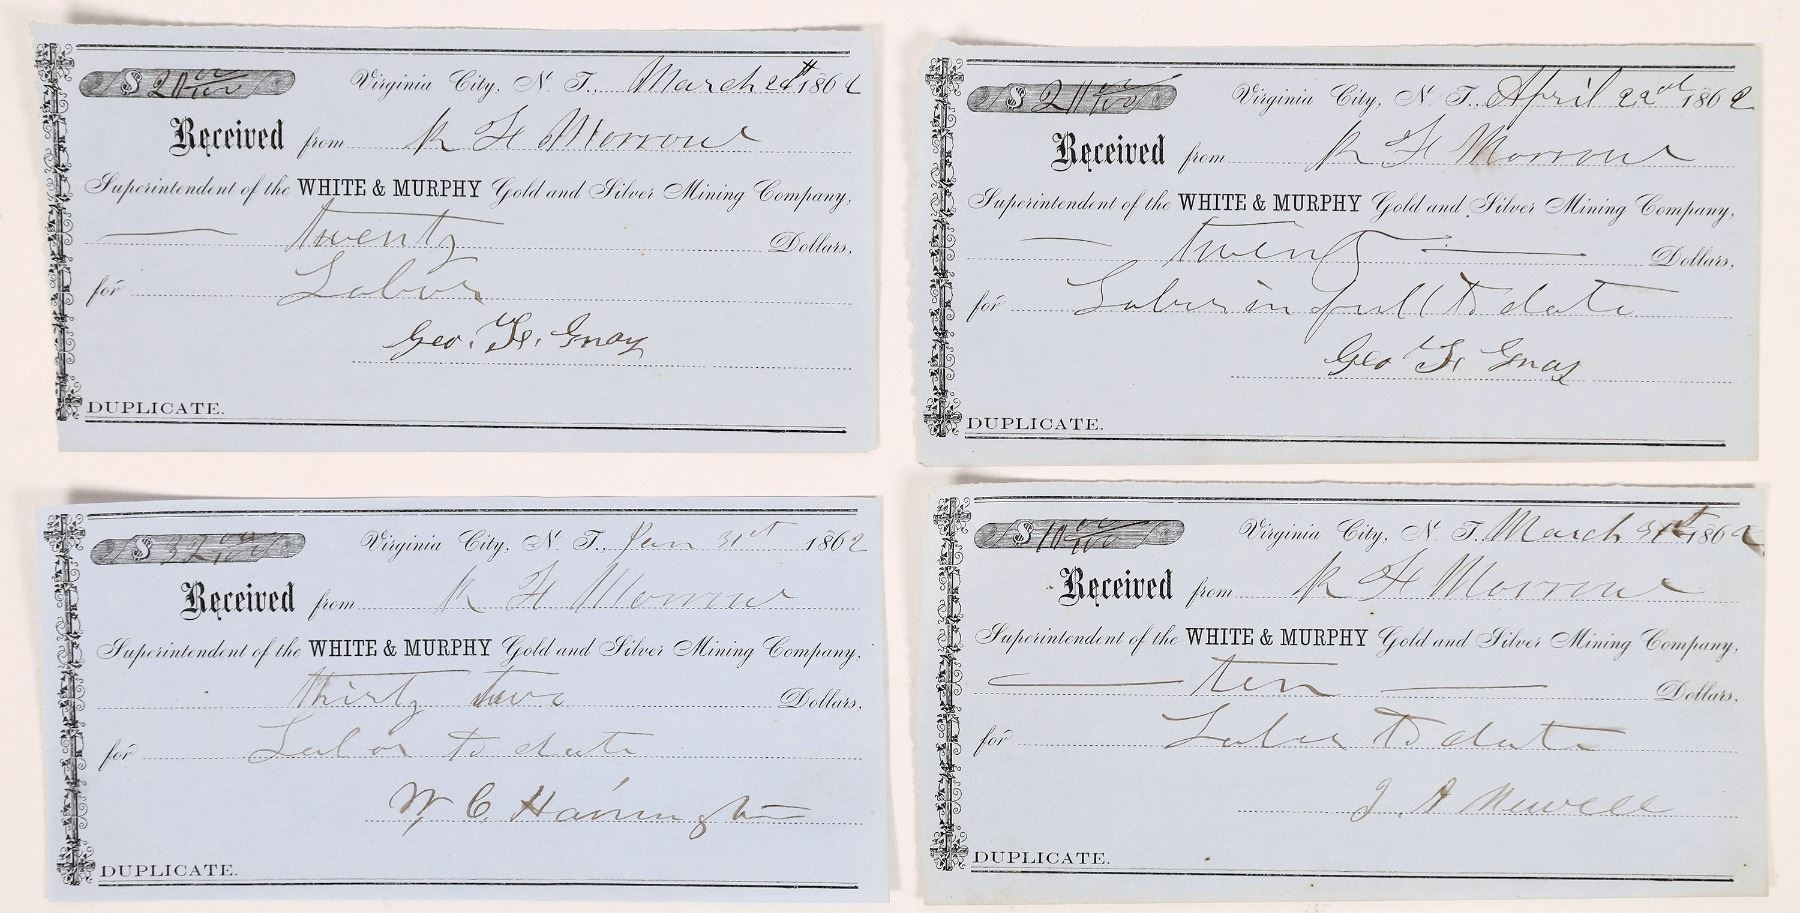 $ 20 00/100 Virginia City, N. T., March 20th 1862
Received from R H Morrow
Superintendent of the WHITE & MURPHY Gold and Silver Mining Company,
twenty Dollars,
for Labor
Geo. H. Gray
DUPLICATE.
$ 20 00/100 Virginia City, N. T., April 22nd 1862
Received from R H Morrow
Superintendent of the WHITE & MURPHY Gold and Silver Mining Company,
twenty Dollars,
for Labor in full to date
Geo H Gray
DUPLICATE.
$ 32 00/100 Virginia City, N. T., Jan 31st 1862
Received from R H Morrow
Superintendent of the WHITE & MURPHY Gold and Silver Mining Company,
thirty two Dollars,
for Labor to date
W, C Harrington
DUPLICATE.
$ 10 00/100 Virginia City, N. T., March 31st 1862
Received from R H Morrow
Superintendent of the WHITE & MURPHY Gold and Silver Mining Company,
ten Dollars,
for Labor to date
J. A Newell
DUPLICATE.